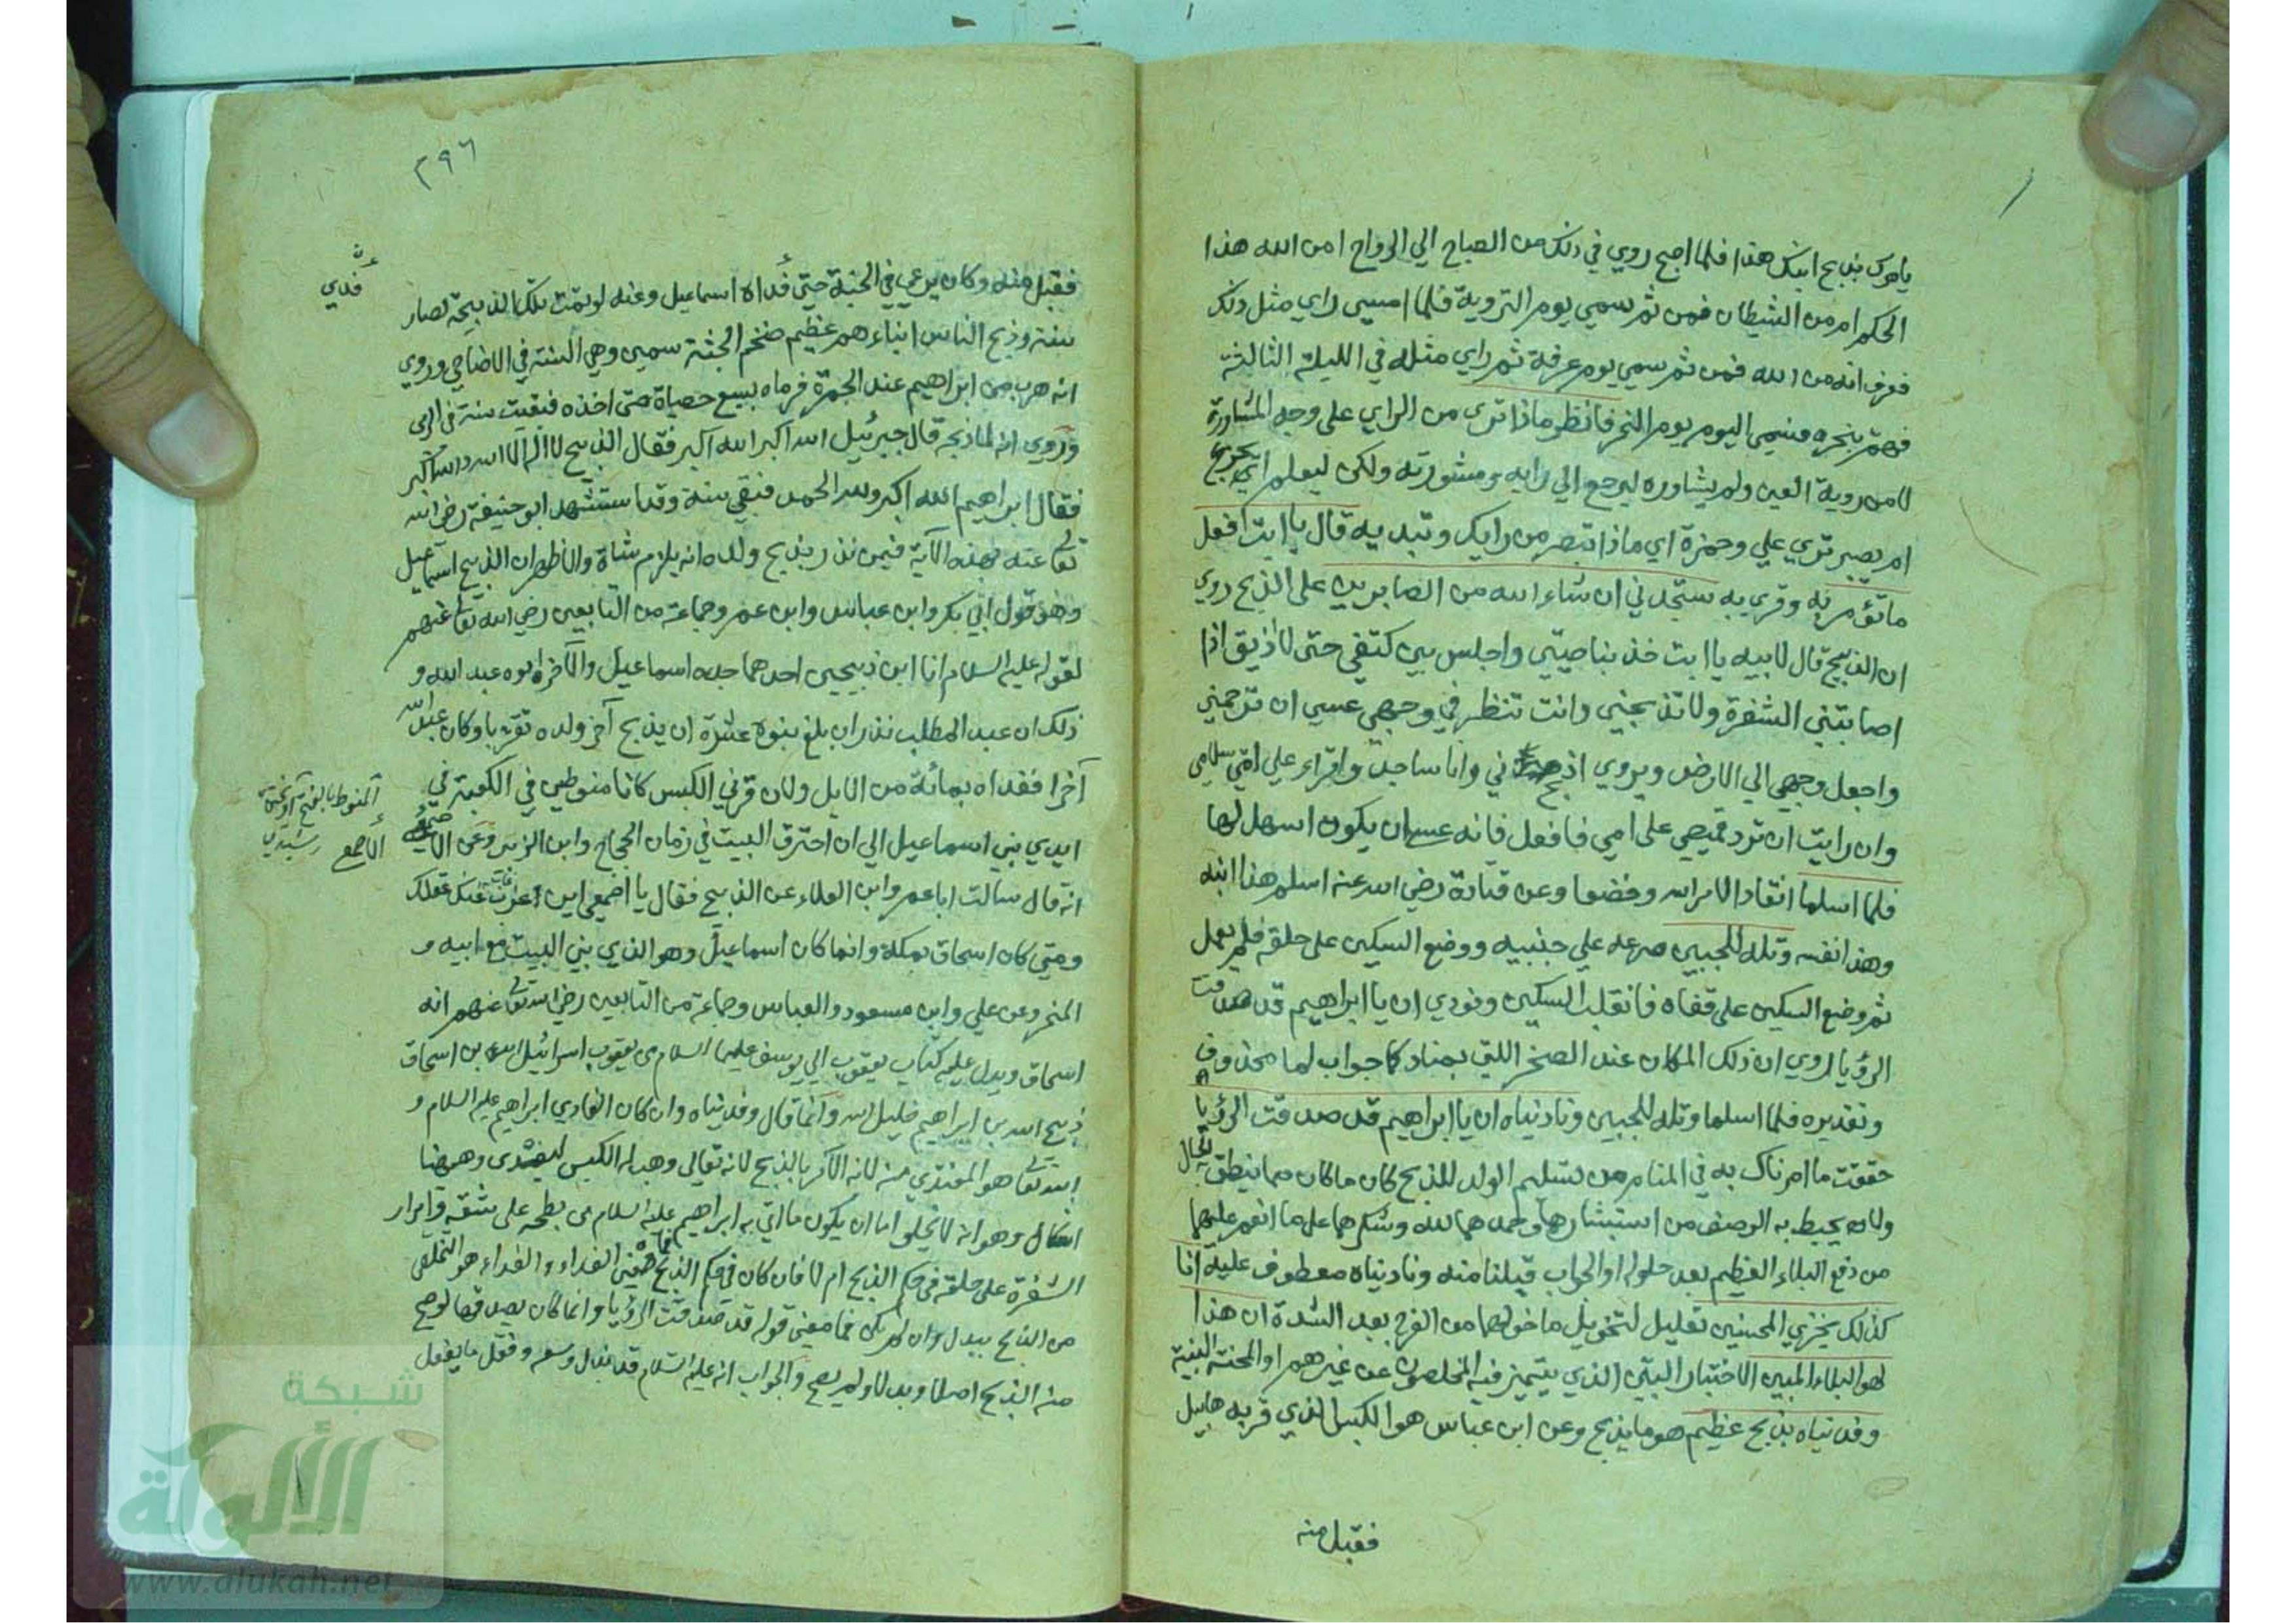 يامرك بذبح ابنك هذا فلما اصبح روي في ذلك من الصباح الي الرواح امن الله هذا
الحكم ام من الشيطان فمن ثم سمي يوم التروية فلما امسي راي مثل ذلك
فعرف انه من الله فمن ثم سمي يوم عرفة ثم راي مثله في الليلة الثالثة
فهم بنحره فسمي اليوم يوم النحر فانظر ماذا تري من الراي علي وجه المشاورة
لا من روية العين ولم يشاوره ليرجع الي رايه ومشورته ولكن ليعلم ايجزع
ام يصبر تري علي وحمزة اي ماذا تبصر من رايك وتبديه قال يا ابت افعل
ما تؤمر به وقري به ستجدني ان شاء الله من الصابرين علي الذبح روي
ان الذبيح قال لابيه يا ابت خذ بناصيتي واجلس بين كتفي حتى لا اذيق اذا
اصابتني الشفرة ولا تذبحني وانت تنظر في وجهي عسي ان ترحمني
واجعل وجهي الي الارض ويروي اذبحني وانا ساجد واقراء علي امي سلامي
وان رايت ان ترد قميصي على امي فافعل فانه عسي ان يكون اسهل لها
فلما اسلما انقاد الامر الله وخضعا وعن قتادة رضي الله عنه اسلم هذا ابنه
وهذا نفسه وتله للجبين صرعه علي جنبيه ووضع السكين على حلقه فلم يعمل
ثم وضع السكين على قفاه فانقلب السكين ونودي ان يا ابراهيم قد صدقت
الرؤيا روي ان ذلك المكان عند الصخر اللتي بمناد كا جواب لما محذوف
وتقديره فلما اسلما وتله للجبين وناديناه ان يا ابراهيم قد صدقت الرؤيا
حققت ما امرناك به في المنام من تسليم الولد للذبح كان ما كان مما ينطق به الحال
ولا يحيط به الوصف من استبشارهما وحمدهما لله وشكرهما على ما انعم عليهما
من دفع البلاء العظيم بعد حلوله او الجواب قبلنا منه وناديناه معطوف عليه انا
كذلك نجزي المحسنين تعليل لتخويل ما خولهما من الفرج بعد الشدة ان هذا
لهو البلاء المبين الاختبار البين الذي يتميز فيه المخلصون عن غيرهم او المحنة البينة
وفديناه بذبح عظيم هو ما يذبح وعن ابن عباس هو الكبش الذي قربه هابيل
فقبل منه
٢٩٦
فقبل منه وكان يرعي في الجنة حتي فداه اسماعيل وعنه لو تمت تلك الذبيحة لصار
فدي
سنة وذبح الناس ابناءهم عظيم ضخم الجثة سمين وهي السنة في الاضاحي وروي
انه هرب من ابراهيم عند الجمرة فرماه بسبع حصياة حتى اخذه فبقيت سنة في الرمي
وروي انه لما ذبحه قال جبرئيل الله اكبر الله اكبر فقال الذبيح لا اله الا الله والله اكبر
فقال ابراهيم الله اكبر ولله الحمد فبقي سنة وقد استشهد ابو حنيفة رضي الله
تعالى عنه بهذه الآية فيمن نذر بذبح ولده انه يلزم شاة والاظهر ان الذبيح اسماعيل
وهو قول ابي بكر وابن عباس وابن عمر وجماعة من التابعين رضي الله تعالى عنهم
لقوله عليه السلام انا ابن ذبيحين احدهما جده اسماعيل والآخر ابوه عبد الله و
ذلك ان عبد المطلب نذر ان بلغ بنوه عشرة ان يذبح آخر ولده تقربا وكان عبد الله
آخرا ففداه بمائة من الابل ولان قرني الكبش كانا منوطين في الكعبة في
ايدي بني اسماعيل الي ان احترق البيت في زمان الحجاج وابن الزبير وعن الاصمعي
انه قال سالت ابا عمرو ابن العلاء عن الذبيح فقال يا اصمعي اين عزب عنك عقلك
ومتي كان اسحاق بمكة وانما كان اسماعيل وهو الذي بني البيت مع ابيه و
المنحر وعن علي وابن مسعود والعباس وجماعة من التابعين رضي الله تعالى عنهم انه
اسحاق ويدل عليه كتاب يعقوب الي يوسف عليهما السلام من يعقوب اسرائيل الله بن اسحاق
ذبيح الله بن ابراهيم خليل الله وانما قال وفديناه وان كان الفادي ابراهيم عليه السلام و
الله تعالى هو المفتدي منه لانه الآمر بالذبح لانه تعالي وهب له الكبش ليفتدي وههنا
اشكال وهو انه لا يخلو اما ان يكون ما اتي به ابراهيم عليه السلام من بطحه على شقه وامرار
الشفرة على حلقه في حكم الذبح ام لا فان كان في حكم الذبح فما معني الفداء والفداء هو التخلص
من الذبح ببدل وان لم يكن فما معني قوله قد صدقت الرؤيا وانما كان يصدقها لو صح
منه الذبح اصلا وبدلا ولم يصح والجواب انه عليه السلام قد بذل وسعه وفعل ما يفعل
شبكة
الألوكة
www.alukah.net